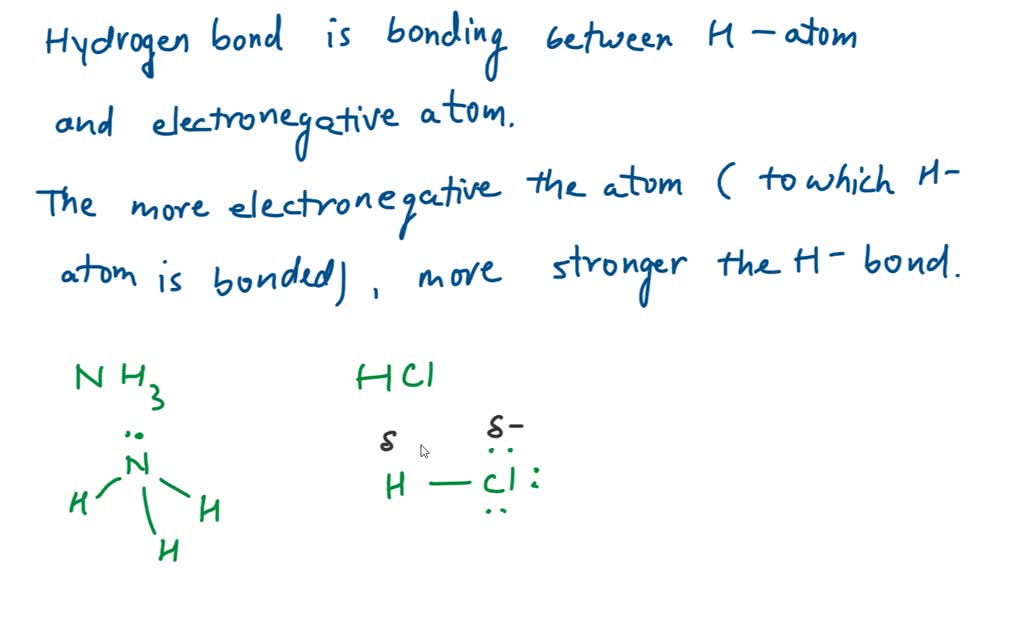 Hydrogen bond is bonding between H-atom
and electronegative atom.
The more electronegative the atom (to which H-
atom is bonded), more stronger the H-bond.
NH3 HCl
δ δ-
N
H — Cl
H H
H